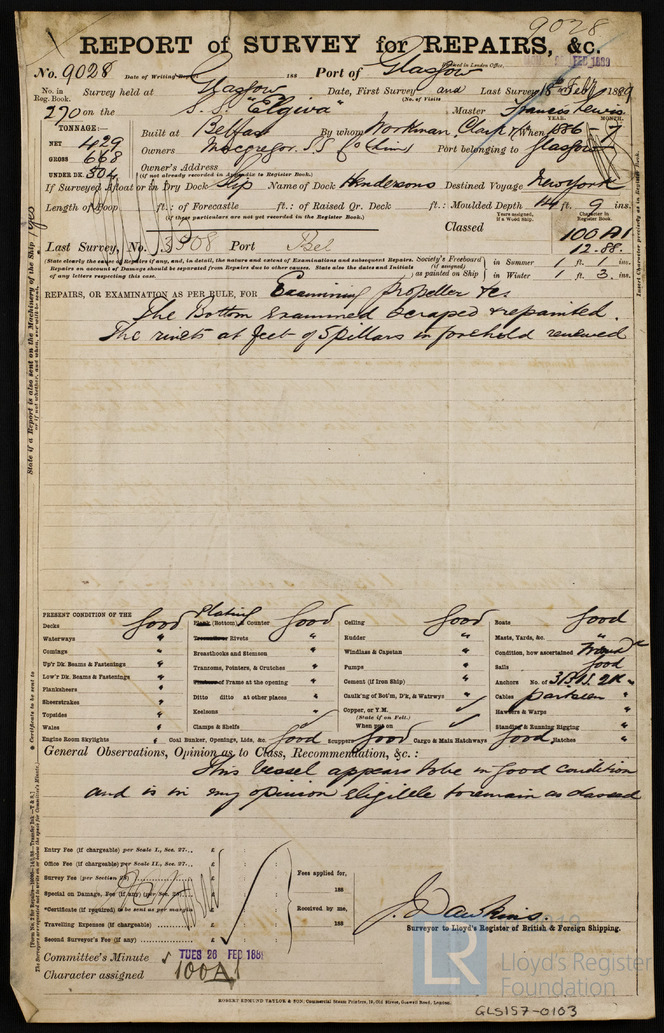 9028
REPORT of SURVEY for REPAIRS, &c.
No. 9028 Date of Writing Report 188 Port of Glasgow
Received in London Office, FEB 1889
No. in Reg. Book. Survey held at Glasgow Date, First Survey and Last Survey 18th Feby 1889
(No. of Visits
270 on the S.S. "Elgiva" Master Francis Lewis
TONNAGE:— YEAR. MONTH.
NET 429 Built at Belfast By whom Workman, Clark When 1886 - 7
GROSS 668 Owners Macgregor SS Co Lim Port belonging to Glasgow
UNDER DK. 504 Owner's Address
(if not already recorded in Appendix to Register Book.)
If Surveyed Afloat or in Dry Dock Slip Name of Dock Hendersons Destined Voyage New York
Length of Poop ft.: of Forecastle ft.: of Raised Qr. Deck ft.: Moulded Depth 14 ft. 9 ins.
(if these particulars are not yet recorded in the Register Book.)
Years assigned, if a Wood Ship. Character in Register Book.
Classed 100 A1
12.88.
Last Survey, No. 3508 Port Bel
(State clearly the cause of Repairs if any, and, in detail, the nature and extent of Examinations and subsequent Repairs.
Repairs on account of Damage should be separated from Repairs due to other causes. State also the dates and Initials
of any letters respecting this case.
Society's Freeboard (if assigned) as painted on Ship
in Summer 1 ft. 1 ins.
in Winter 1 ft. 3 ins.
REPAIRS, OR EXAMINATION AS PER RULE, FOR Examining propeller &c.
The Bottom examined scraped & repainted.
The rivets at feet of 5 pillars in forehold renewed
PRESENT CONDITION OF THE
Decks good
Waterways "
Comings "
Up'r Dk. Beams & Fastenings "
Low'r Dk. Beams & Fastenings "
Planksheers "
Sheerstrakes "
Topsides "
Wales "
Engine Room Skylights "
Plating
Plank (Bottom) & Counter good
Treenails or Rivets "
Breasthooks and Stemson "
Transoms, Pointers, & Crutches "
Timbers of Frame at the opening "
Ditto ditto at other places "
Keelsons "
Clamps & Shelfs
Coal Bunker, Openings, Lids, &c. good
Ceiling good
Rudder "
Windlass & Capstan "
Pumps "
Cement (if Iron Ship) "
Caulk'ng of Bot'm, D'k, & Watrwys "
Copper, or Y.M.
(State if on Felt.)
When put on
Scuppers good
Cargo & Main Hatchways good
Boats good
Masts, Yards, &c. "
Condition, how ascertained
Sails good
Anchors No. of 3B 1S. 2K "
Cables "
Hawsers & Warps "
Standing & Running Rigging "
Hatches "
General Observations, Opinion as to Class, Recommendation, &c. :
This Vessel appears to be in good condition
and is in my opinion eligible to remain as classed
Entry Fee (if chargeable) per Scale I., Sec. 27... £
Office Fee (if chargeable) per Scale II., Sec. 27... £
Survey Fee (per Section 28) £
Special on Damage, Fee (if any) (per Sec. 28) £
*Certificate (if required) to be sent as per margin £
Travelling Expenses (if chargeable) £
Second Surveyor's Fee (if any) £
Fees applied for,
188
Received by me,
188
J. Dawkins.
Surveyor to Lloyd's Register of British & Foreign Shipping.
Committee's Minute TUES 26 FEB 188
Character assigned 100A1
ROBERT EDMUND TAYLOR & SON; Commercial Steam Printers, 19, Old Street, Goswell Road, London.
State if a Report is also sent on the Machinery of the Ship yes
or if not whether, and when, one will be sent.
* Certificate to be sent to
Insert Character precisely as in Register Book.
LR
Lloyd's Register
Foundation
GLS157-0103